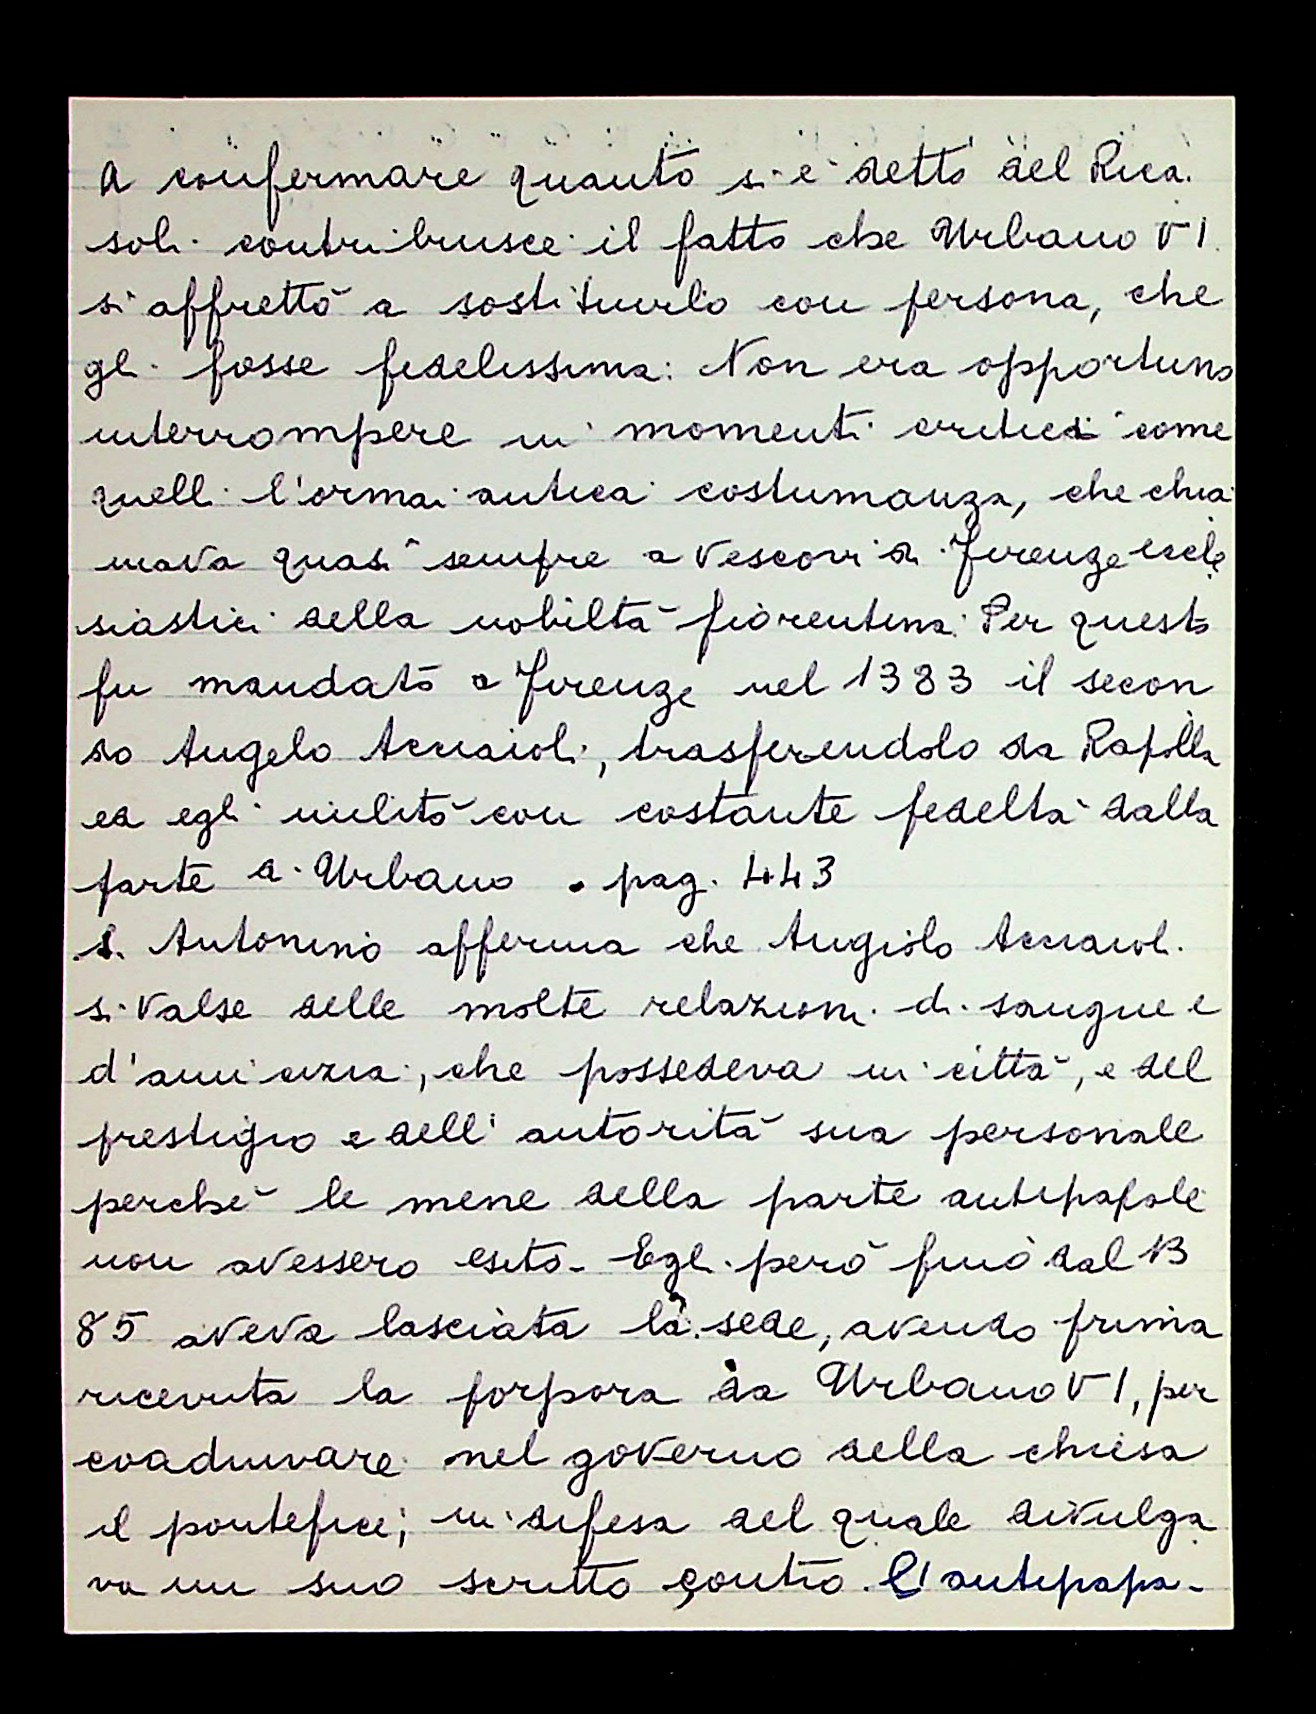 A confermare quanto si è detto del Rica.
soli contribuisce il fatto che Urbano VI
si affrettò a sostituirlo con persona, che
gli fosse fedelissima: Non era opportuno
interrompere in momenti critici come
quelli l'ormai antica costumanza, che chia
mava quasi sempre a vescovi di Firenze eccle
siastici della nobiltà fiorentina. Per questo
fu mandato a Firenze nel 1383 il secon
do Angelo Acciaioli, trasferendolo da Rapolla
ed egli militò con costante fedeltà dalla
parte di Urbano . pag. 443
S. Antonino afferma che Angiolo Acciaioli
si valse delle molte relazioni di sangue e
d'amicizia, che possedeva in città, e del
prestigio e dell'autorità sua personale
perchè le mene della parte antipapale
non avessero esito - Egli però fino dal 13
85 aveva lasciata la sede, avendo prima
ricevuta la porpora da Urbano VI, per
coadiuvare nel governo della chiesa
il pontefice; in difesa del quale divulga
va un suo scritto contro l'antipapa -